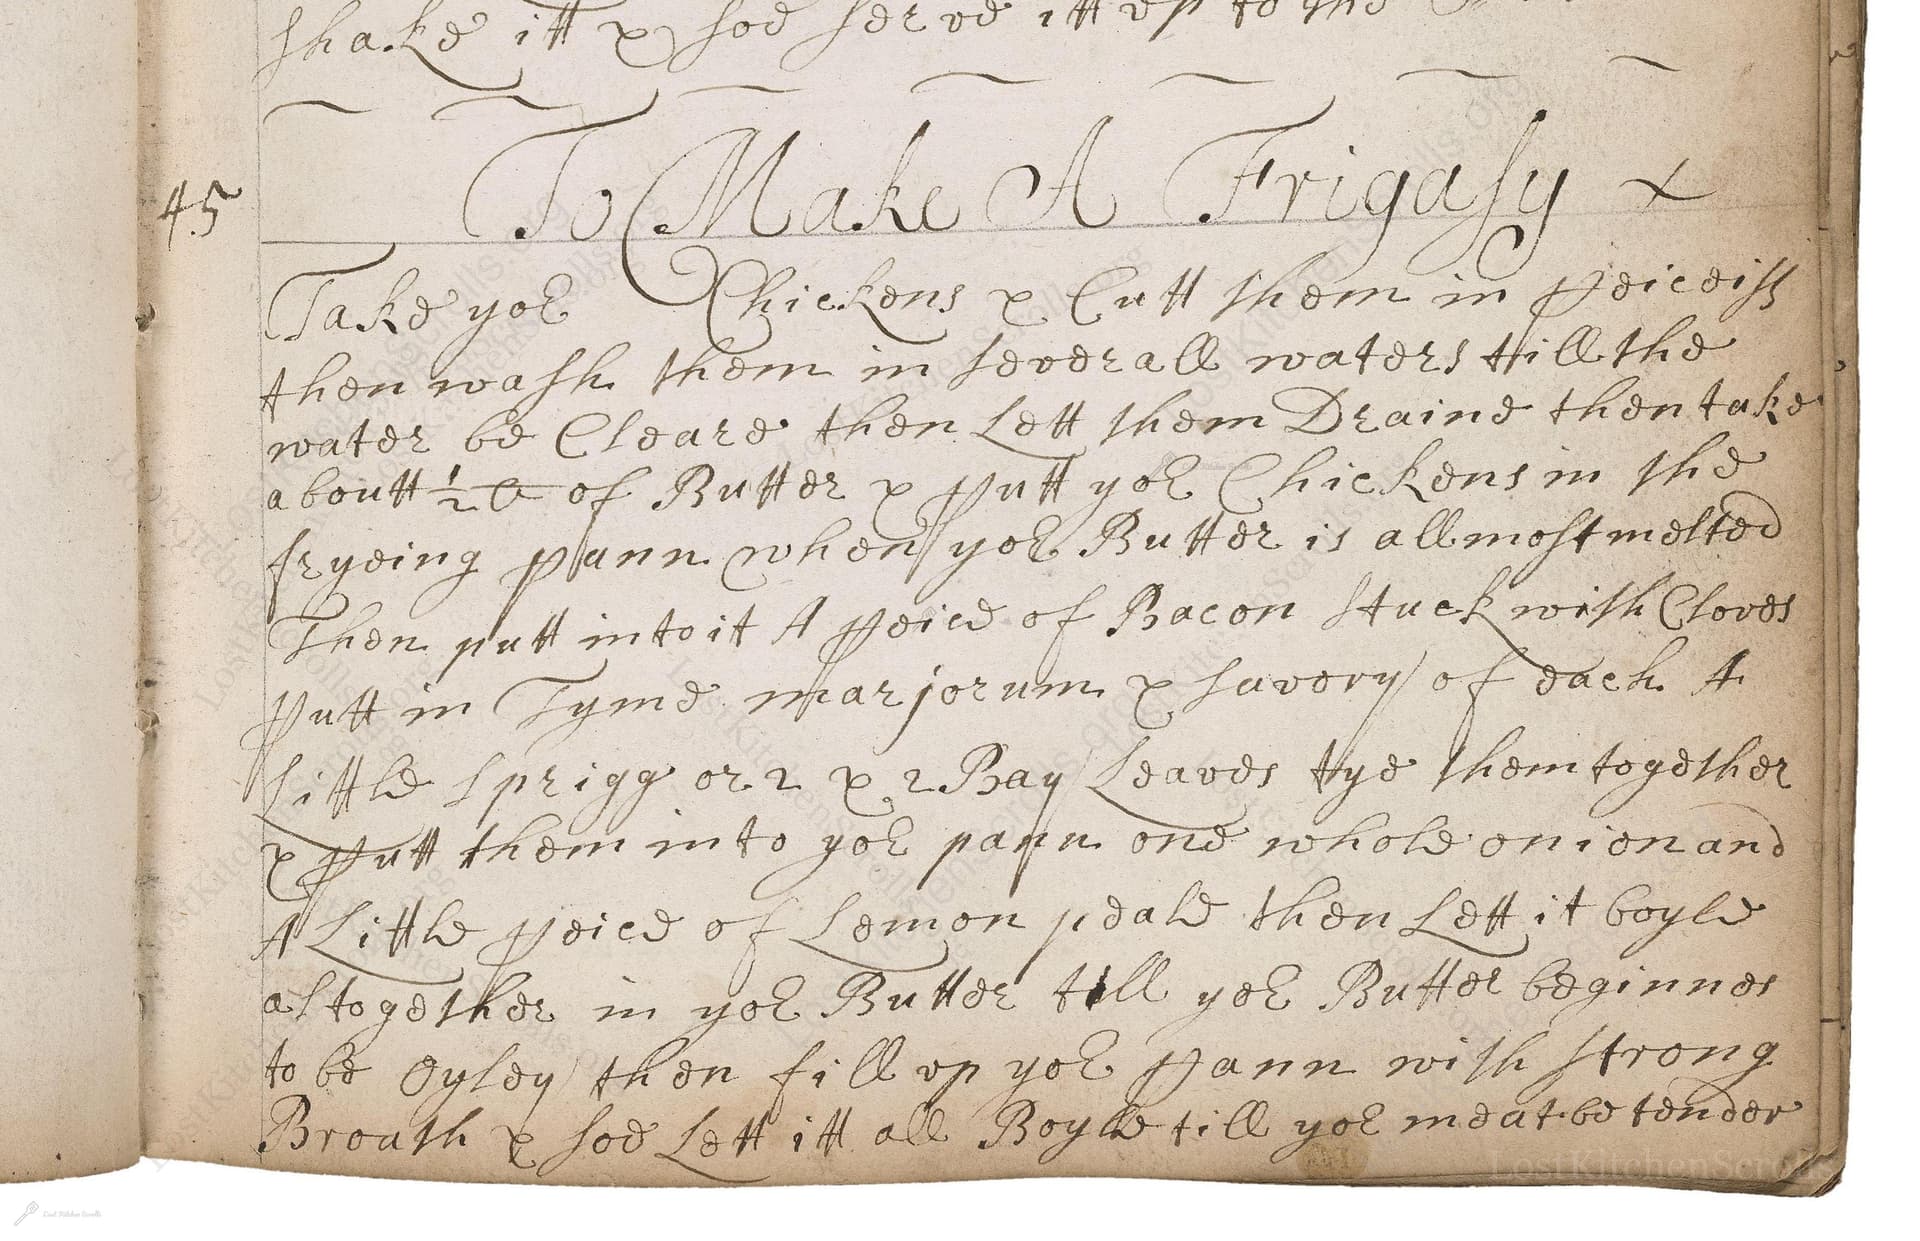 shake itt & soe serve itt vp to the
45
To Make A Frigasy
Take yor Chickens & Cutt them in peiceiss
then wash them in severall waters till the
water be Cleare then Lett them Draine then take
aboutt 1/2 of Butter & putt yor Chickens in the
fryeing pann when yor Butter is allmost melted
Then putt into it A peice of Bacon Stuck with Cloves
putt in Tyme marjorum & savory of each A
Little sprigg or 2 & 2 Bay Leaves tye them together
& putt them into yor pann one whole onion and
A Little peice of Lemon peale then Lett it boyle
altogether in yor Butter till yor Butter beginnes
to be Oyley then fill vp yor pann with strong
Broath & soe Lett itt all Boyle till yor meat be tender
LostKitchenScrolls
Lost Kitchen Scrolls